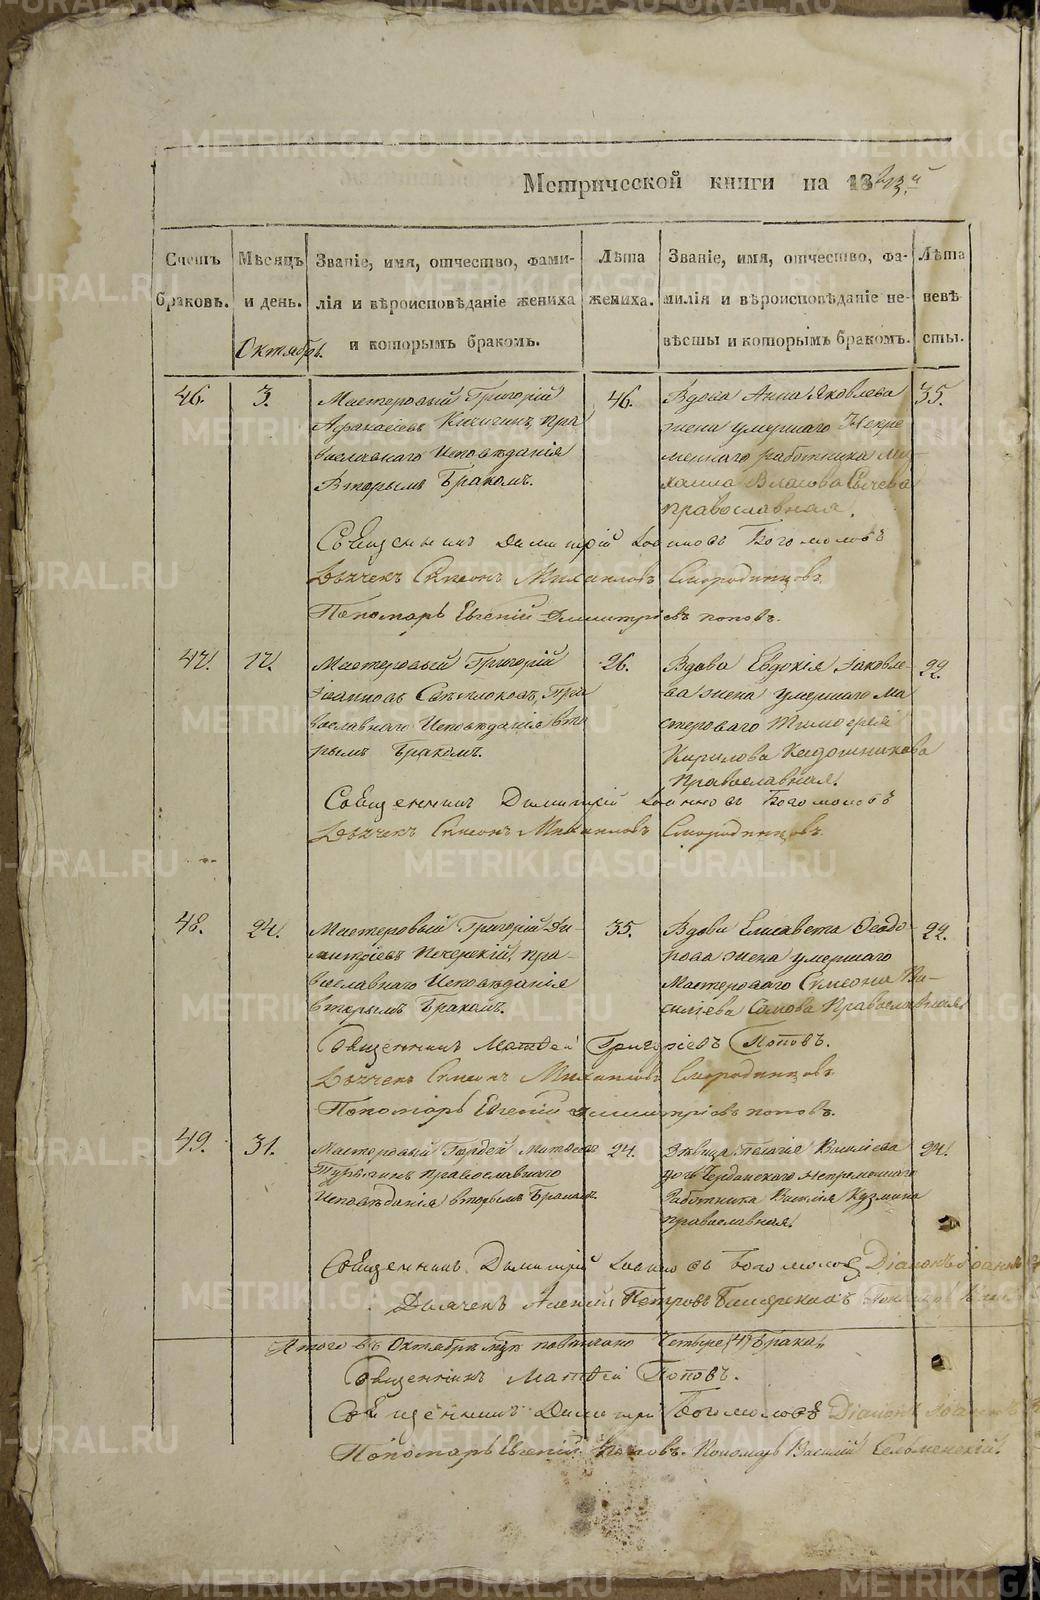 METRIKI.GASO-URAL.RU
Метрической книги на 1843.й
Счетъ браковъ.
Мѣсяцъ и день.
Октябрь.
Званіе, имя, отчество, фами-
лія и вѣроисповѣданіе жениха
и которымъ бракомъ.
Лѣта жениха.
Званіе, имя, отчество, фа-
милія и вѣроисповѣданіе не-
вѣсты и которымъ бракомъ.
Лѣта невѣ сты.
46.
3.
Мастеровый Григорій
православнаго Исповѣданія
Вторымъ бракомъ.
46.
Вдова Анна Яковлева
жена умершаго Непре
меннаго работника Ми
хаила Власова Сычева
православная.
35.
Священникъ Димитрій Іоанновъ Богомоловъ
Дьячекъ Симеонъ Михаиловъ Смородинцовъ.
Пономарь Евгеній Димитріевъ Поповъ.
47.
17.
Мастеровый Григорій
Іоанновъ Пра
вославнаго Исповѣданія вто
рымъ бракомъ.
26.
Вдова Евдокія Іаковле
ва жена умершаго ма
стероваго Тимофея
Кирилова
Православная.
22.
Священникъ Димитрій Іоанновъ Богомоловъ
Дьячекъ Симеонъ Михаиловъ Смородинцовъ.
48.
24.
Мастеровый Григорій Ди-
митріевъ пра-
вославнаго Исповѣданія
вторымъ бракомъ.
35.
Вдова Елисавета Ѳеодо-
рова жена умершаго
Мастероваго Симеона Ва-
силіева Православная
22.
Священникъ Матѳей Григоріевъ Поповъ.
Дьячекъ Симеонъ Михаиловъ Смородинцовъ
Пономарь Евгеній Димитріевъ Поповъ.
49.
31.
Мастеровый Гордей Матѳеевъ
православнаго
Исповѣданія вторымъ бракомъ.
24.
Дѣвица Пелагія Василіева
дочь Чердынскаго Непременнаго
Работника Василія Кузмина
православная.
24.
Священникъ Димитрій Іоанновъ Богомоловъ Діаконъ Іоаннъ
Дьячекъ Алексій Петровъ
Итого въ Октябрѣ м҃цѣ повѣнчано Четыре (4) брака
Священникъ Матѳей Поповъ.
Священникъ Димитрій Богомоловъ Діаконъ Іоаннъ
Пономарь Евгеній Поповъ. Пономарь Василій